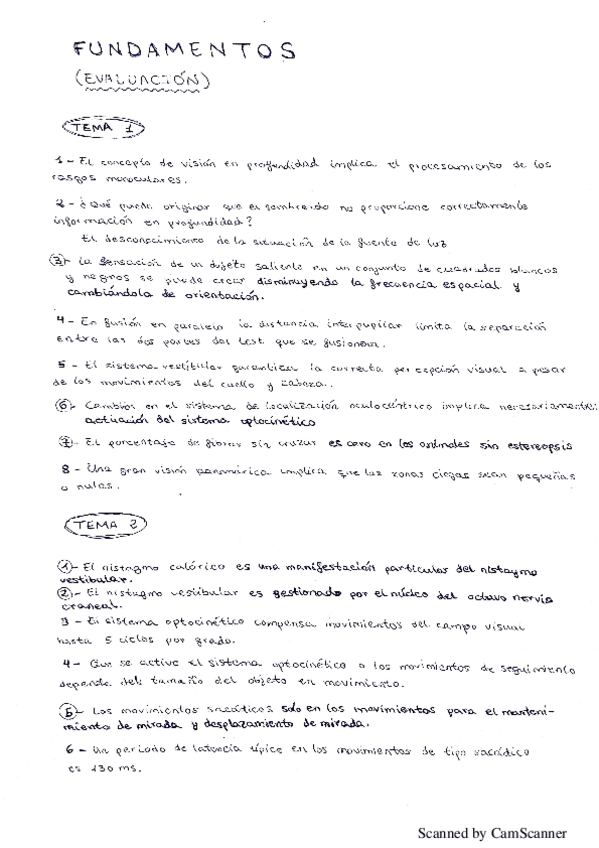 FUNDAMENTOS
(EVALUACIÓN)
TEMA 1
1 - El concepto de visión en profundidad implica el procesamiento de los
rasgos monoculares.
2 - ¿Qué puede originar que el sombreado no proporcione correctamente
información en profundidad?
El desconocimiento de la situación de la fuente de luz
3 - La sensación de un objeto saliente en un conjunto de cuadrados blancos
y negros se puede crear disminuyendo la frecuencia espacial y
cambiándola de orientación.
4 - En fusión en paralelo la distancia interpupilar limita la separación
entre las dos partes del test que se fusionan.
5 - El sistema vestibular garantiza la correcta percepción visual a pesar
de los movimientos del cuello y cabeza.
6 - Cambios en el sistema de localización oculocéntrico implica necesariamente:
actuación del sistema optocinético
7 - El porcentaje de fibras sin cruzar es cero en los animales sin estereopsis
8 - Una gran visión panorámica implica que las zonas ciegas sean pequeñas
o nulas.
TEMA 2
1 - El nistagmo calórico es una manifestación particular del nistagmo
vestibular.
2 - El nistagmo vestibular es gestionado por el núcleo del octavo nervio
craneal.
3 - El sistema optocinético compensa movimientos del campo visual
hasta 5 ciclos por grado.
4 - Que se active el sistema optocinético o los movimientos de seguimiento
depende del tamaño del objeto en movimiento.
5 - Los movimientos sacádicos solo en los movimientos para el manteni-
miento de mirada y desplazamiento de mirada.
6 - Un periodo de latencia típico en los movimientos de tipo sacádico
es 130 ms.
Scanned by CamScanner